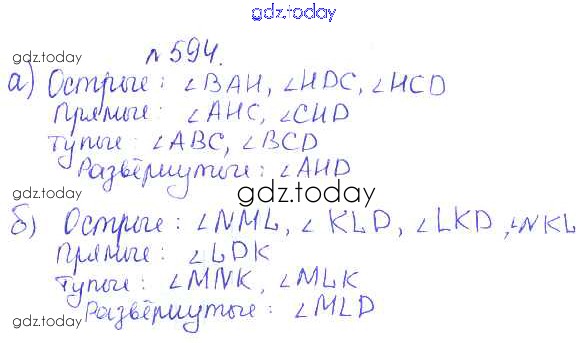 gdz.today
№594.
gdz.today
а) Острые: ∠BAH, ∠HDC, ∠HCD
Прямые: ∠AHC, ∠CHD
Тупые: ∠ABC, ∠BCD
Развёрнутые: ∠AHD
gdz.today gdz.today
б) Острые: ∠NML, ∠KLD, ∠LKD, ∠NKL
Прямые: ∠LDK
Тупые: ∠MNK, ∠MLK
Развёрнутые: ∠MLD
gdz.today gdz.today